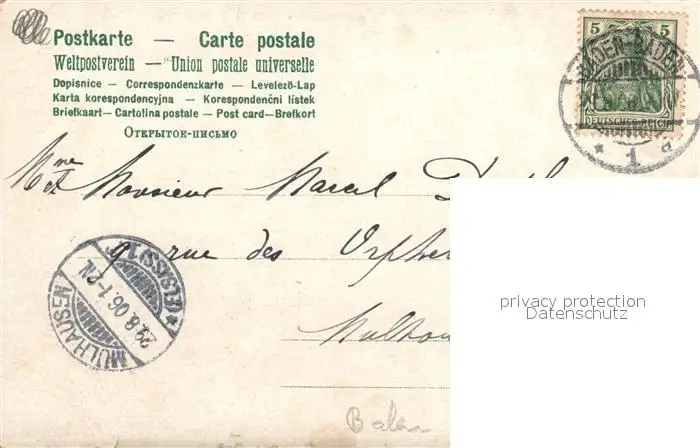 Postkarte — Carte postale
Weltpostverein — Union postale universelle
Dopisnice — Correspondenzkarte — Levelező-Lap
Karta korespondencyjna — Korespondenční lístek
Briefkaart — Cartolina postale — Post card — Brefkort
Открытое-письмо
5 5
DEUTSCHES REICH
BADEN-BADEN
* 1 d
Mme et Monsieur Marcel
9 rue des Orphe
Mulhou
MÜLHAUSEN
29.8.06.1-2N.
* (ELSASS) 1
privacy protection
Datenschutz
Baden